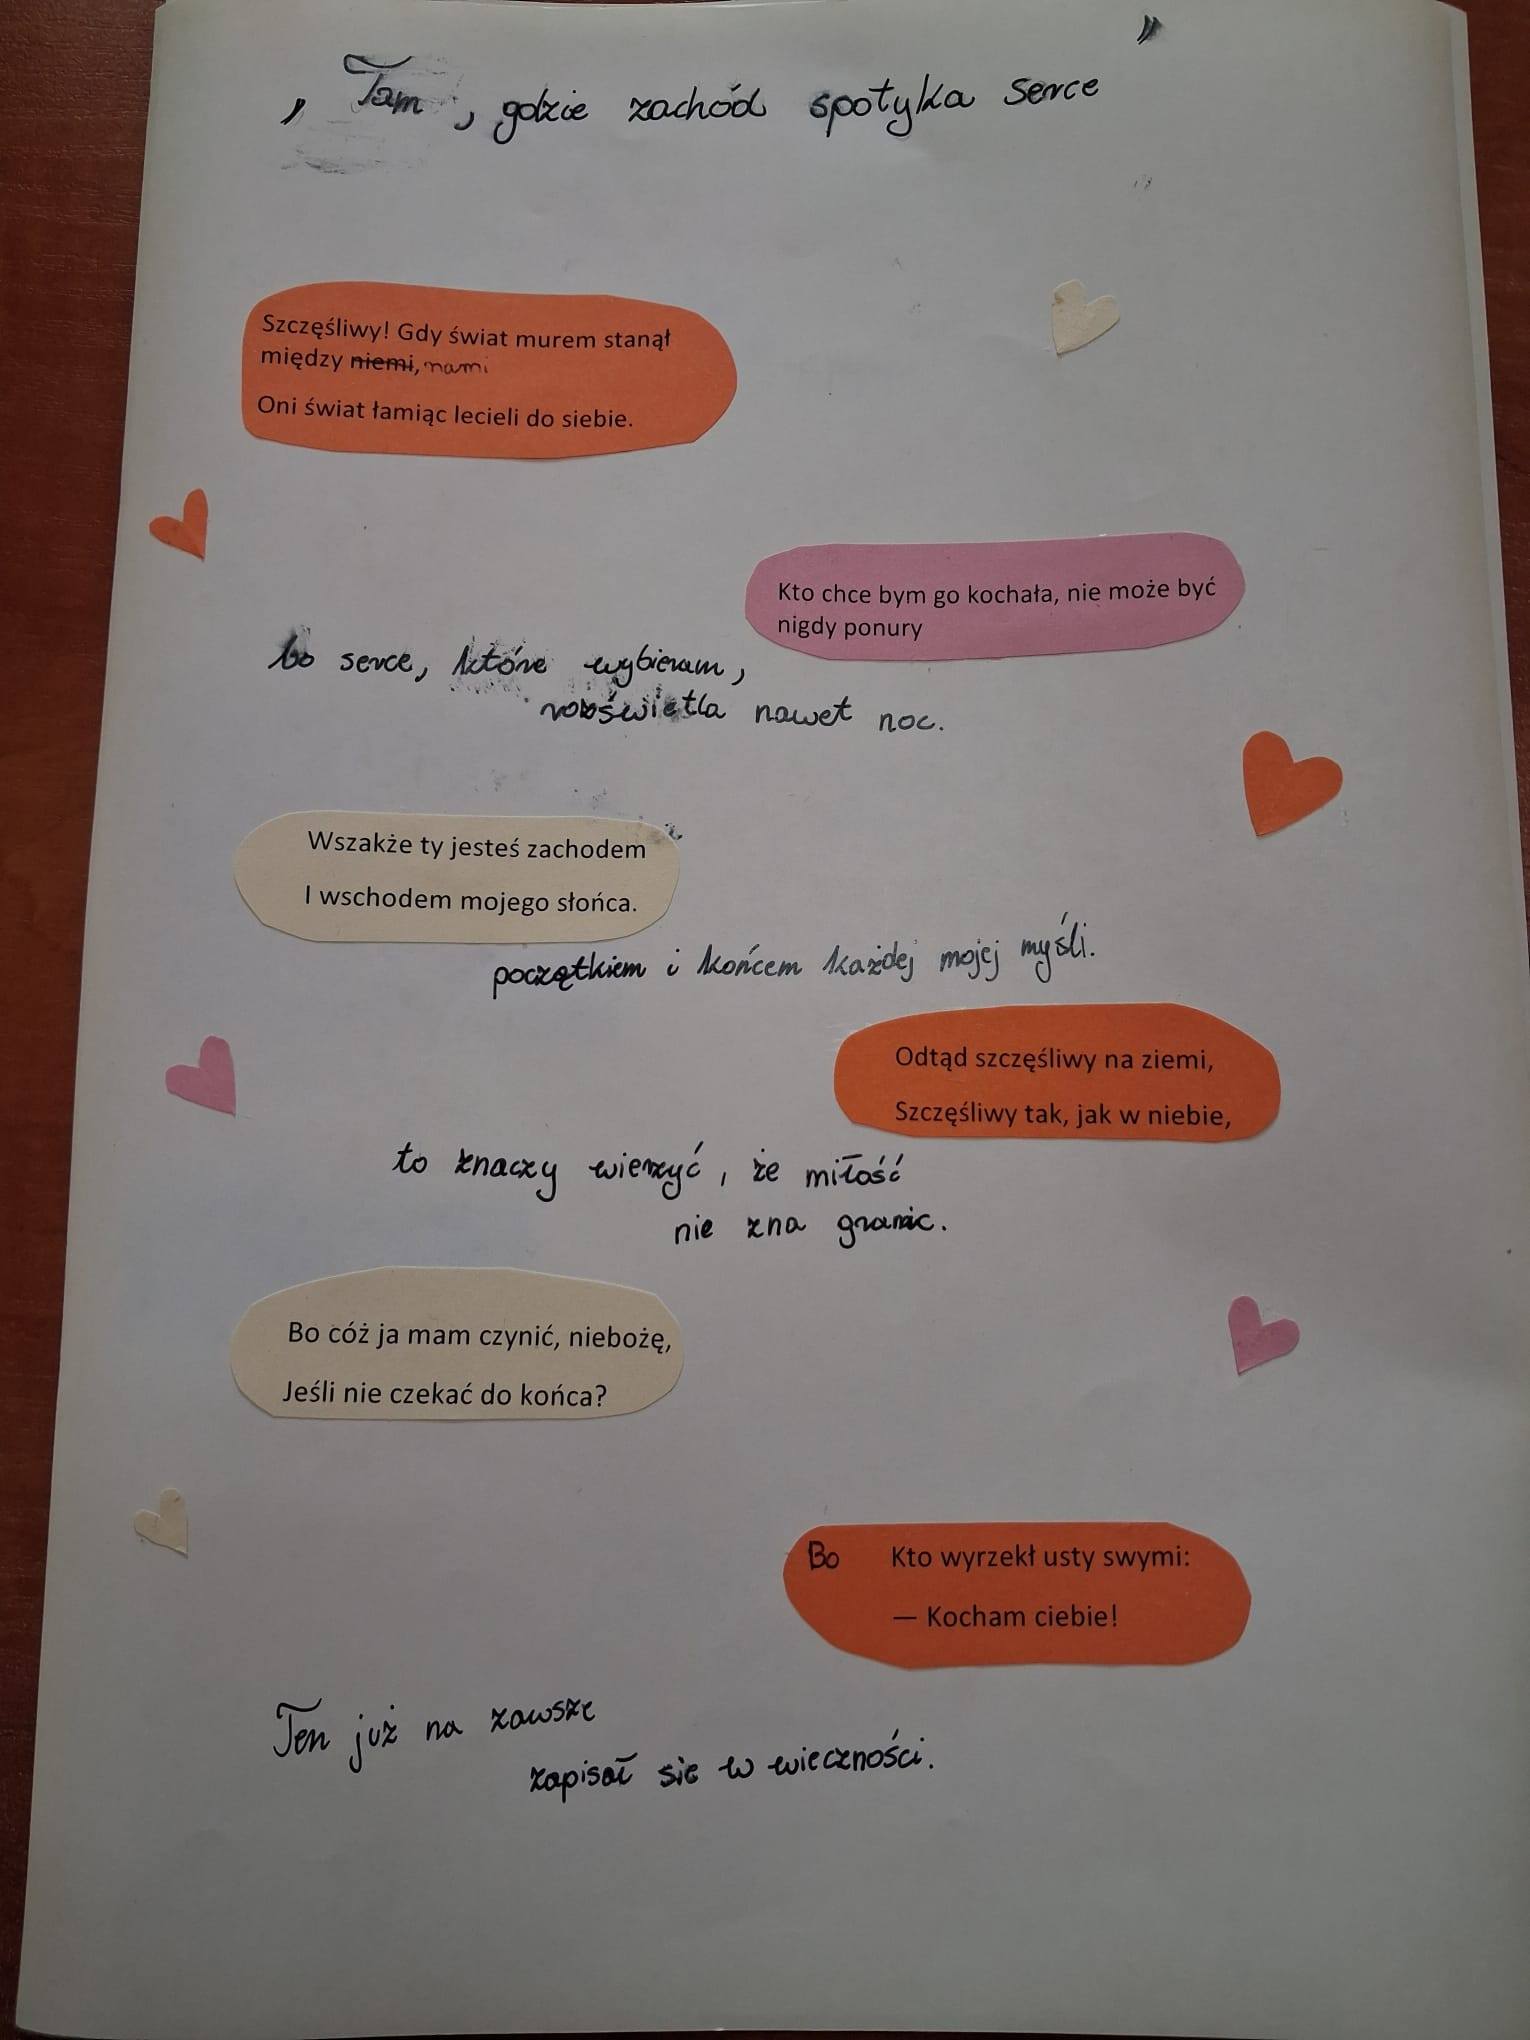 „Tam, gdzie zachód spotyka serce”
Szczęśliwy! Gdy świat murem stanął
między niemi, nami
Oni świat łamiąc lecieli do siebie.
Kto chce bym go kochała, nie może być
nigdy ponury
bo serce, które wybieram,
rozświetla nawet noc.
Wszakże ty jesteś zachodem
I wschodem mojego słońca.
początkiem i końcem każdej mojej myśli.
Odtąd szczęśliwy na ziemi,
Szczęśliwy tak, jak w niebie,
to znaczy wierzyć, że miłość
nie zna granic.
Bo cóż ja mam czynić, niebożę,
Jeśli nie czekać do końca?
Bo Kto wyrzekł usty swymi:
— Kocham ciebie!
Ten już na zawsze
zapisał się w wieczności.